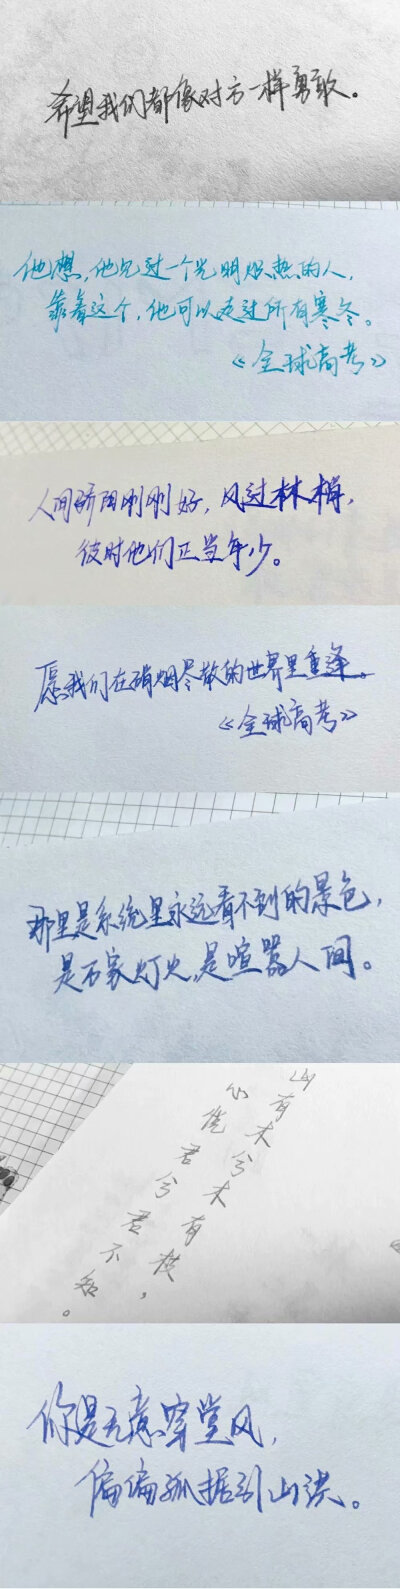 希望我们都像对方一样勇敢。
他想,他见过一个光明炽热的人,
靠着这个,他可以走过所有寒冬。
《全球高考》
人间骄阳刚刚好,风过林梢,
彼时他们正当年少。
愿我们在硝烟尽散的世界里重逢。
《全球高考》
那里是系统里永远看不到的景色,
是万家灯火,是喧嚣人间。
山有木兮木有枝,
心悦君兮君不知。
你是无意穿堂风,
偏偏孤倨引山洪。